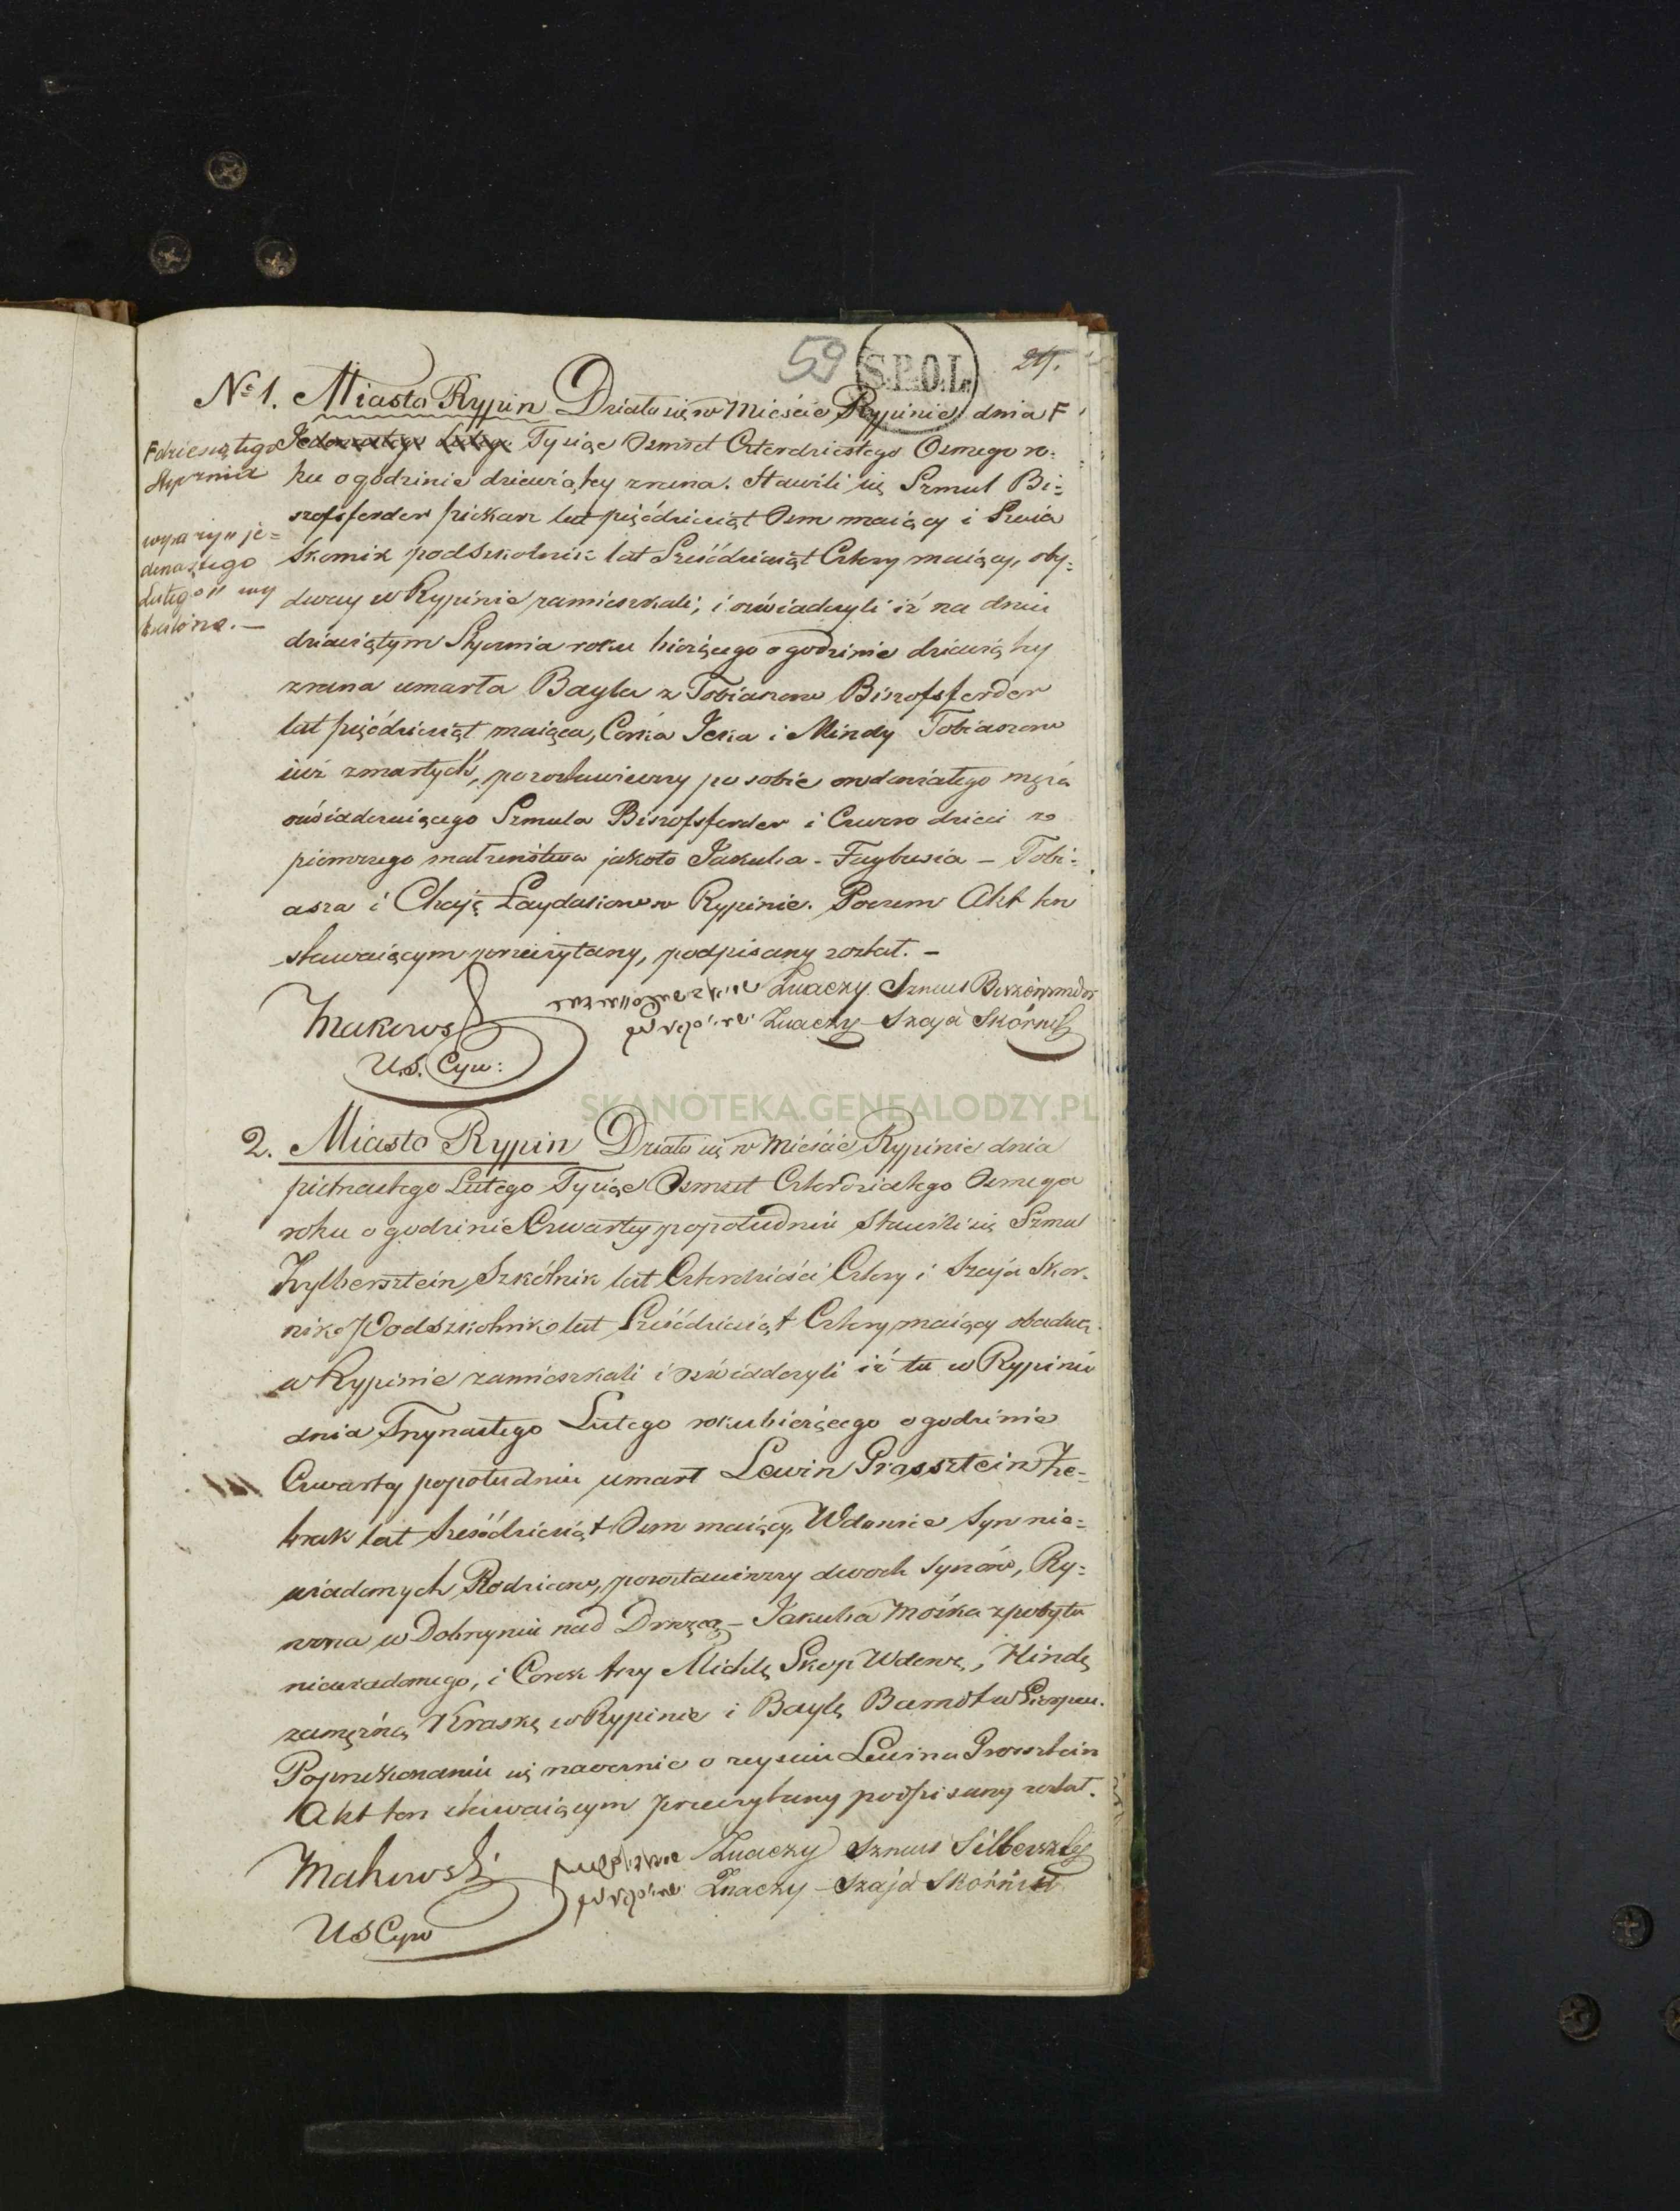 59 S.P.O.L.
No 1. Miasto Rypin Działo się w Mieście Rypinie dnia F
F dziesiątego Stycznia
Jedenastego Lutego Tysiąc Osmset Czterdziestego Osmego ro=
ku o godzinie dziewiątey zrana. Stawili się Szmul Bi=
szofsferder piekarz lat pięćdziesiąt Osm maiący i Szaia
wyrazy „je=
denastego
Lutego” wy
kreślone. —
Skornik podszkolnik lat Sześćdziesiąt Cztery maiący, oby=
dway w Rypinie zamieszkali; i oświadczyli iż na dniu
dziewiątym Stycznia roku bieżącego o godzinie dziewiątey
zrana umarła Bayla z Tobiaszow Biszofsferder
lat pięćdziesiąt maiąca, Córka Icka i Mindy Tobiaszow
iuż zmarłych, pozostawiwszy po sobie owdowiałego męża
oświadczaiącego Szmula Biszofsferder i Czworo dzieci z
pierwszego małżeństwa jakoto Jakuba - Faybusia - Tobi=
asza i Chaję w Rypinie. Poczem Akt ten
stawaiącym przeczytany, podpisany został. —
Znaczy Szmul
Znaczy Szaja Skórnik
Makowski
U.S. Cyw:
SKANOTEKA.GENEALODZY.PL
2. Miasto Rypin Działo się w Mieście Rypinie dnia
pietnastego Lutego Tysiąc Osmset Czterdziestego Osmego
roku o godzinie Czwartey popołudniu Stawili się Szmul
Zylbersztein Szkólnik lat Czterdzieści Cztery i Szaja Skor=
nik Podszkolnik lat Sześćdziesiąt Cztery maiący obadwa
w Rypinie zamieszkali i oświadczyli iż tu w Rypinie
dnia Trzynastego Lutego roku bieżącego o godzinie
Czwartey popołudniu umarł Lewin Grassztein Że=
brak lat Sześćdziesiąt Osm maiący, Wdowiec Syn nie=
wiadomych Rodziców, pozostawiwszy dwoch synów, Ry=
w Dobrzyniu nad Drwęcą - Jakuba Moska z pobytu
niewiadomego, i Corek trzy Michlę Skop Wdowę, Hindę
zamężną Kraskę w Rypinie i Baylę w Sierpcu.
Po przekonaniu się naocznie o zeyściu Lewina
Akt ten stawaiącym przeczytany podpisany został.
Znaczy Szmul
Znaczy Szaja Skórnik
Makowski
U S Cyw